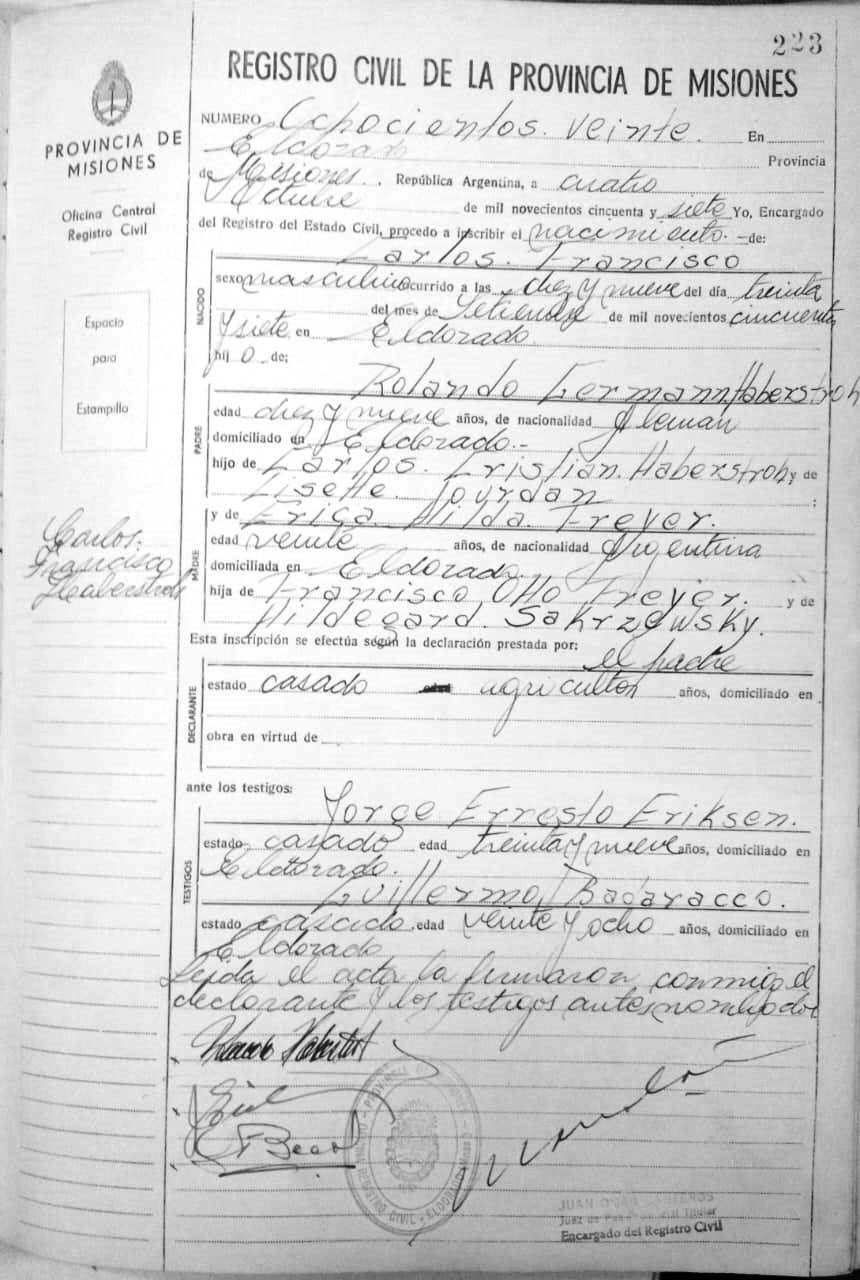 223
REGISTRO CIVIL DE LA PROVINCIA DE MISIONES
PROVINCIA DE
MISIONES
Oficina Central
Registro Civil
Espacio
para
Estampilla
Carlos.
Francisco
Haberstroh
NUMERO Ochocientos. veinte. En
Eldorado Provincia
de Misiones. , República Argentina, a cuatro
Octubre de mil novecientos cincuenta y siete Yo, Encargado
del Registro del Estado Civil, procedo a inscribir el nacimiento. - de:
Carlos. Francisco
NACIDO
sexo masculino ocurrido a las diez y nueve del día treinta
del mes de Setiembre de mil novecientos cincuenta
y siete en Eldorado.
hij o de;
Rolando Germann Haberstroh
PADRE
edad diez y nueve años, de nacionalidad Aleman
domiciliado en Eldorado.-
hijo de Carlos. Cristian. Haberstroh y de
Liselle. Jourdan ;
MADRE
y de Erica Hilda. Freyer.
edad veinte años, de nacionalidad Argentina
domiciliada en Eldorado.
hija de Francisco Otto Freyer. y de
Hildegard. Sakrzewsky.
Esta inscripción se efectúa según la declaración prestada por:
el padre
DECLARANTE
estado casado agricultor años, domiciliado en
obra en virtud de
ante los testigos:
Jorge Ernesto Eriksen.
TESTIGOS
estado casado edad treinta y nueve años, domiciliado en
Eldorado.
Guillermo Badaracco.
estado casado. edad veinte y ocho años, domiciliado en
Eldorado
Leida el acta la firmaron conmigo el
declarante y los testigos antes nombrados
REGISTRO CIVIL
Juez de Paz Titular
Encargado del Registro Civil